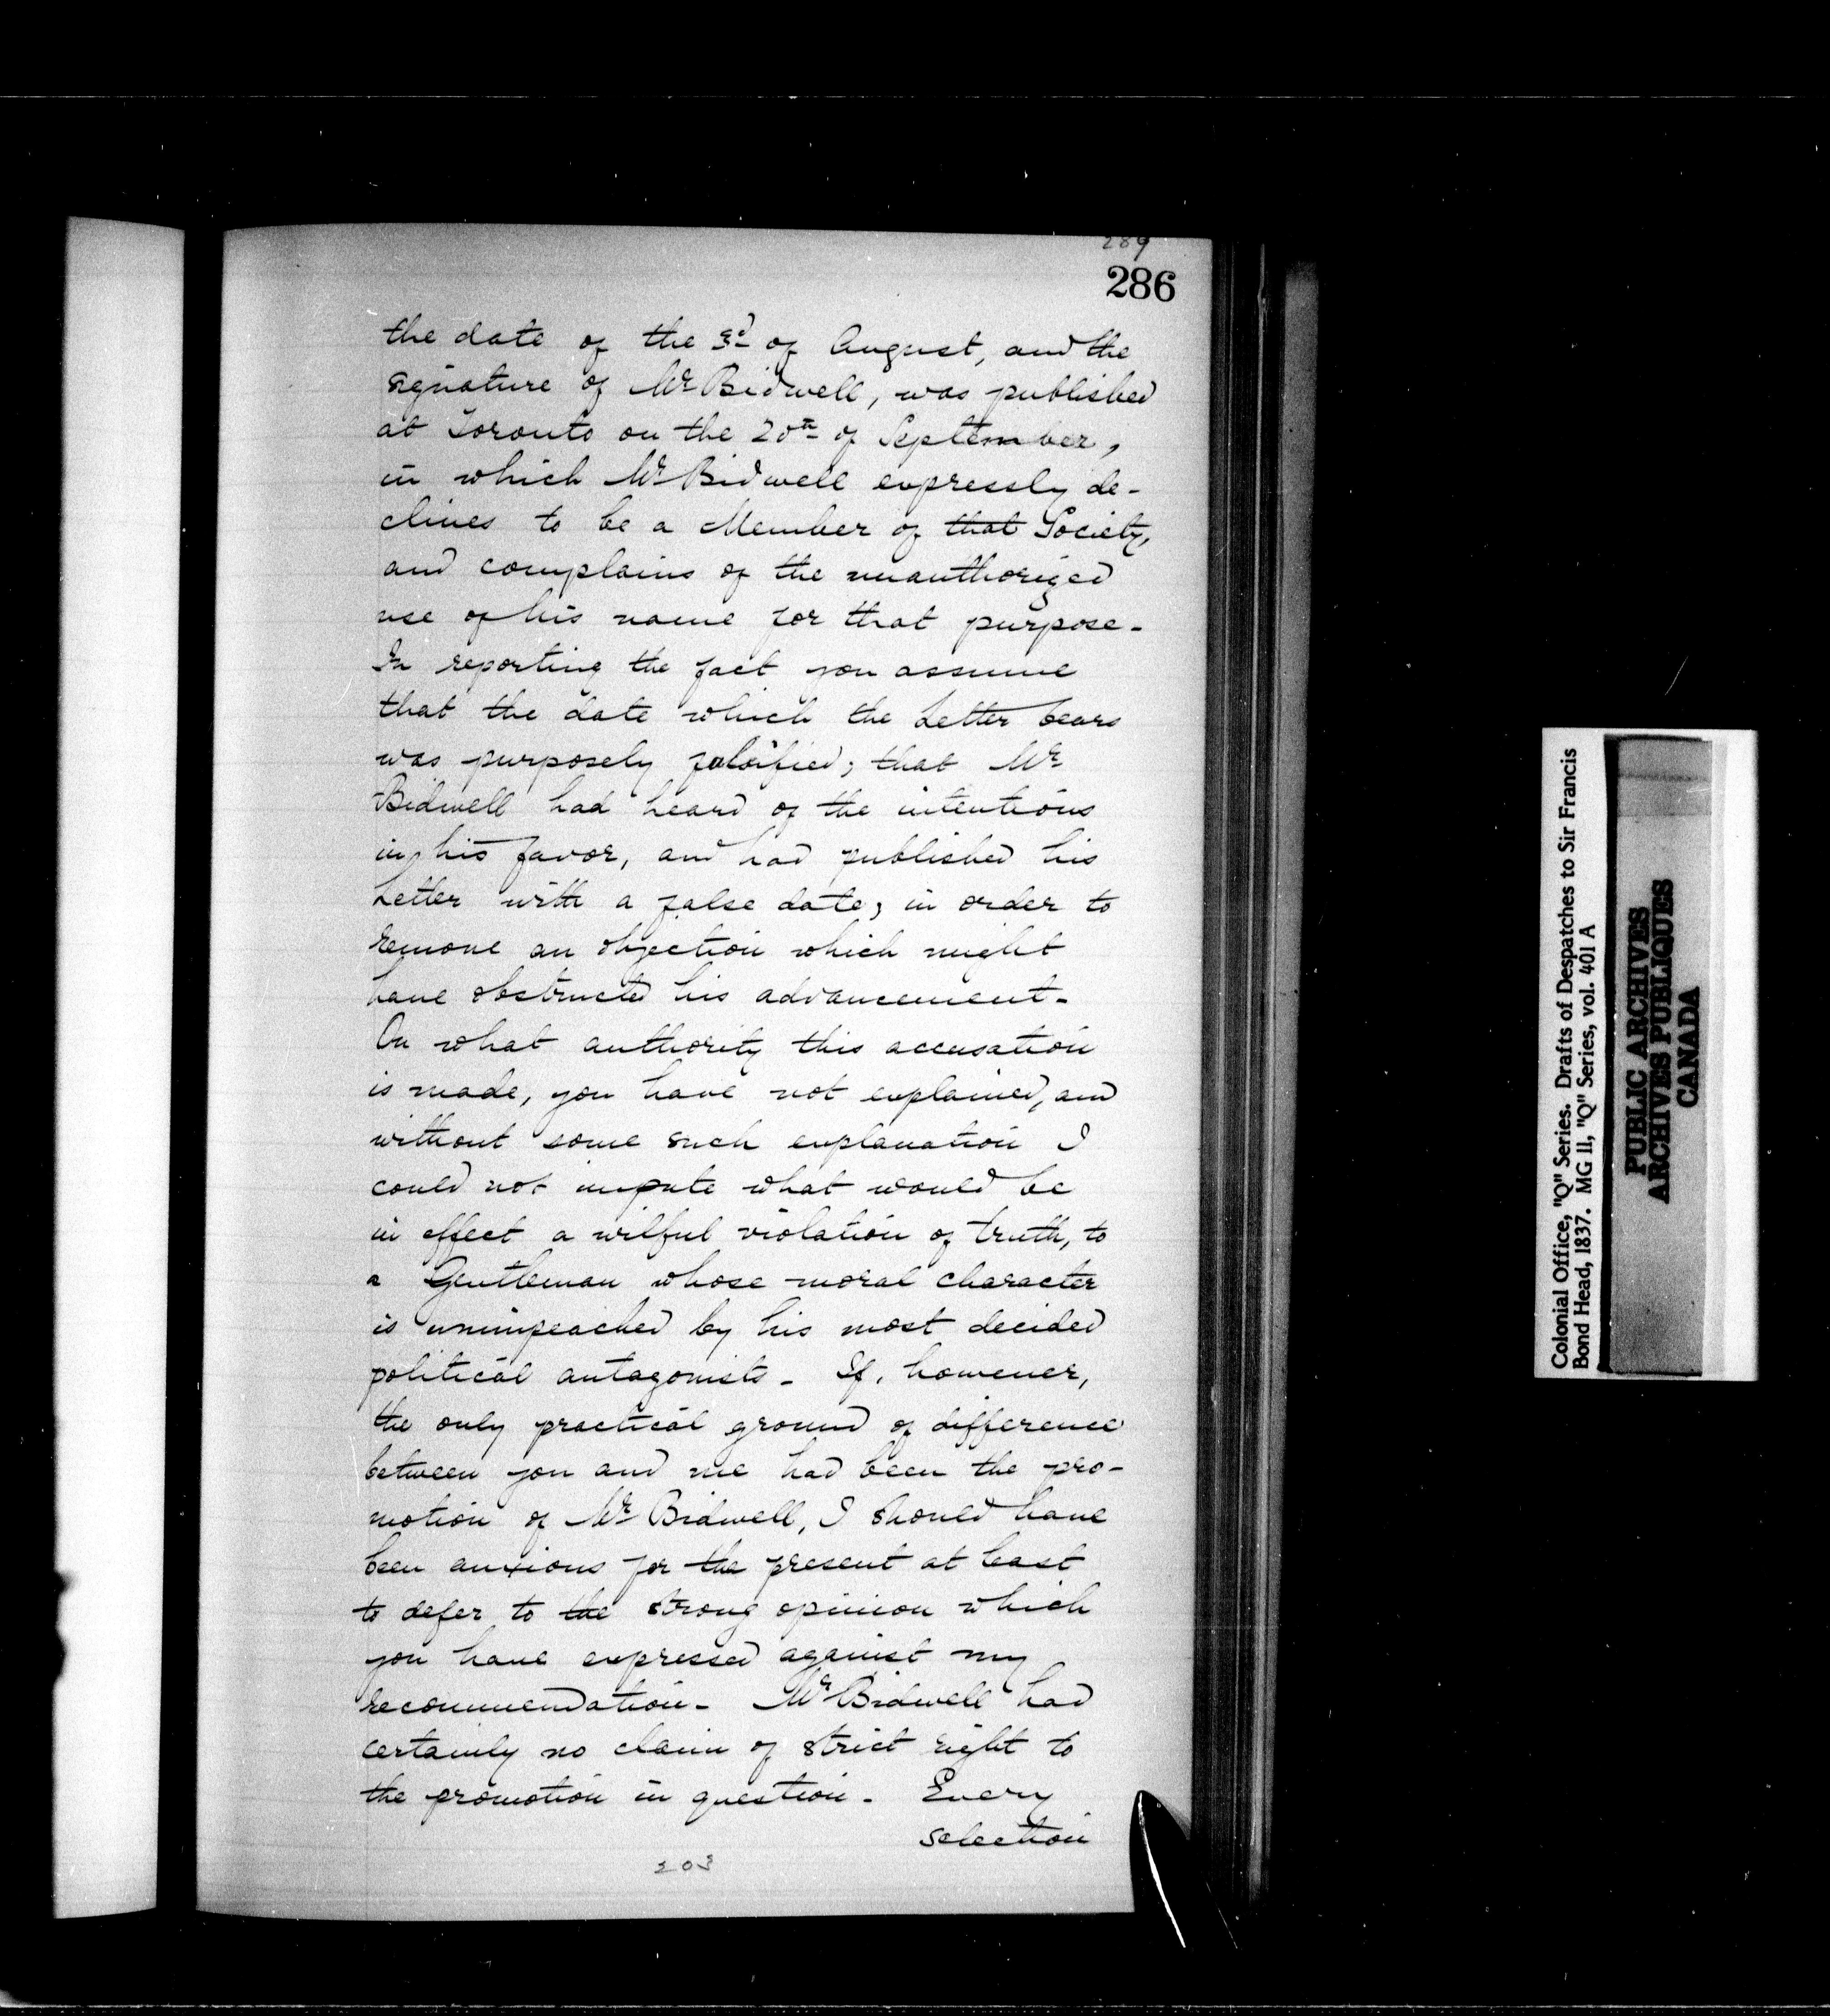 289
286
the date of the 3d of August, and the
signature of Mr Bidwell, was published
at Toronto on the 20th of September,
in which Mr Bidwell expressly de-
clines to be a Member of that Society,
and complains of the unauthorized
use of his name for that purpose -
In reporting the fact you assume
that the date which the Letter bears
was purposely falsified; that Mr
Bidwell had heard of the intentions
in his favor, and had published his
Letter with a false date, in order to
remove an objection which might
have obstructed his advancement -
On what authority this accusation
is made, you have not explained, and
without some such explanation I
could not impute what would be
in effect a wilful violation of truth, to
a Gentleman whose moral character
is unimpeached by his most decided
political antagonists - If, however,
the only practical ground of difference
between you and me had been the pro-
motion of Mr Bidwell, I should have
been anxious for the present at least
to defer to the strong opinion which
you have expressed against my
recommendation - Mr Bidwell had
certainly no claim of strict right to
the promotion in question - Every
selection
203
Colonial Office, "Q" Series. Drafts of Despatches to Sir Francis
Bond Head, 1837. MG 11, "Q" Series, vol. 401 A
PUBLIC ARCHIVES
ARCHIVES PUBLIQUES
CANADA